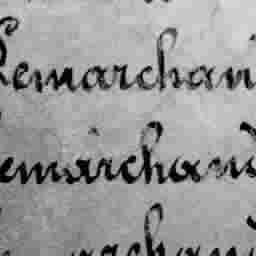 Lemarchan
emarchand
archand